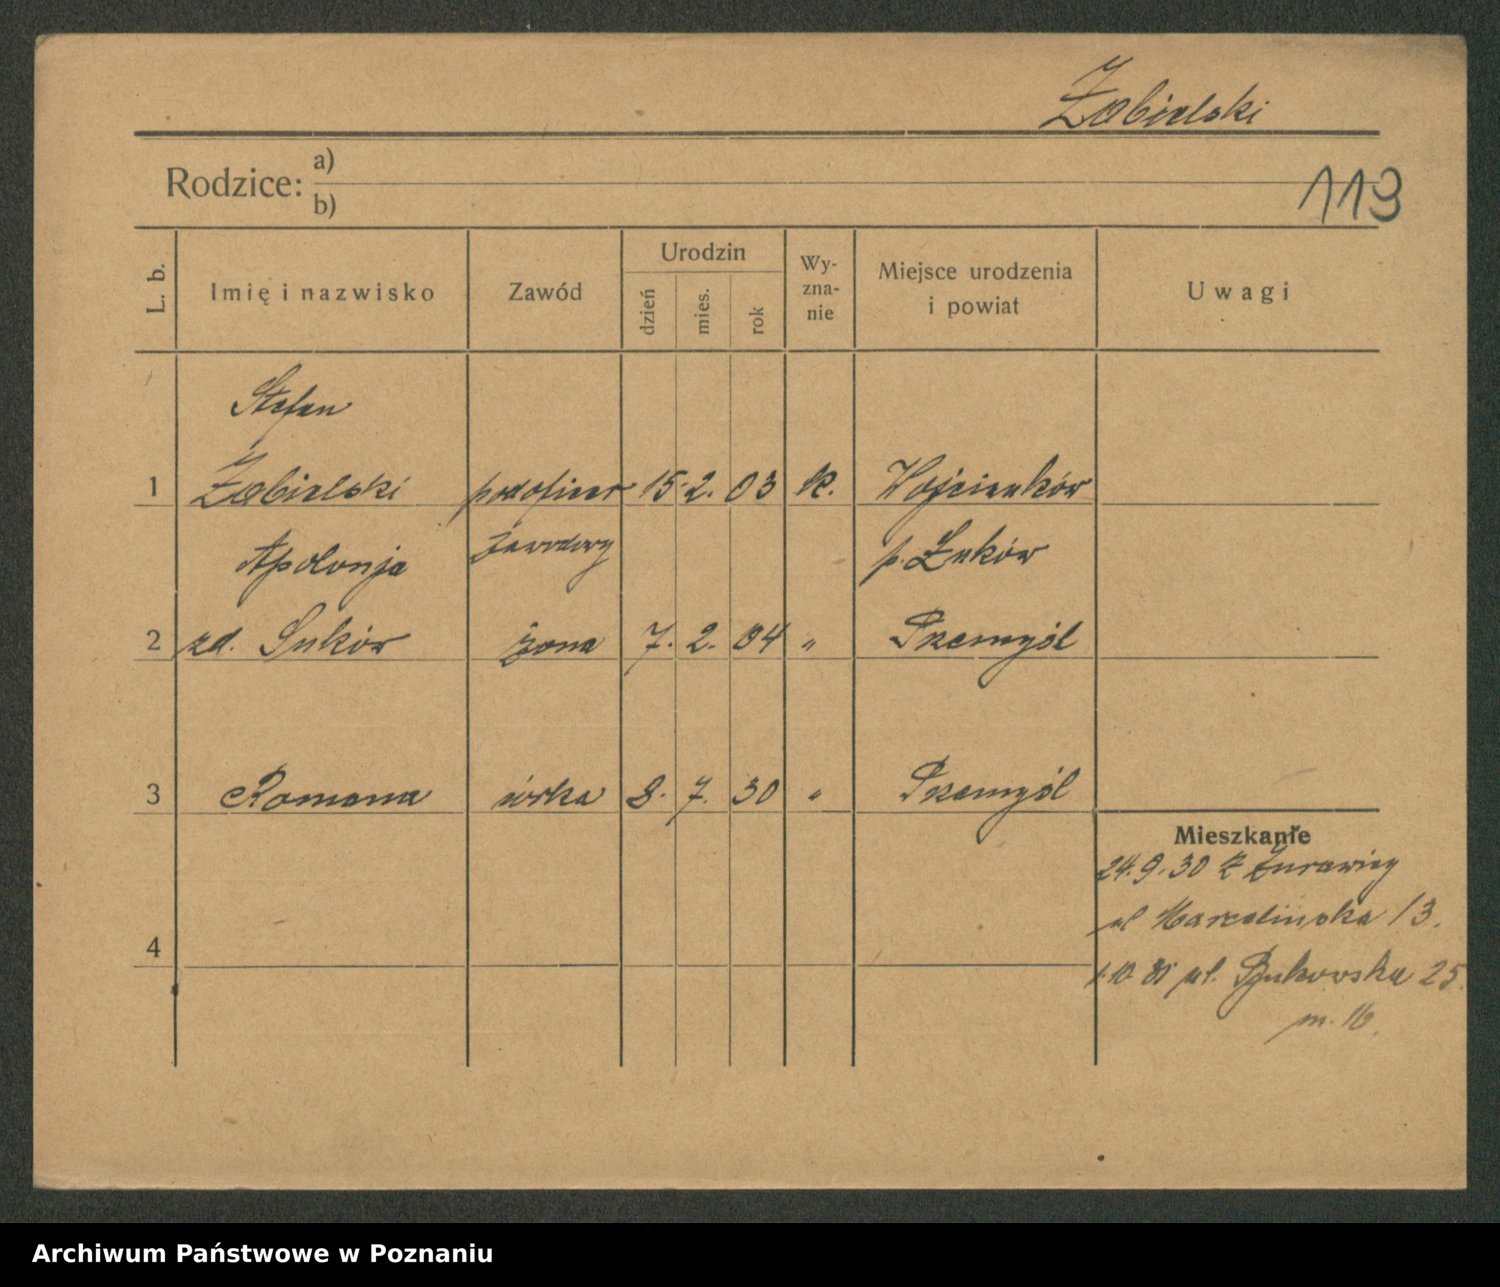 Żabielski
Rodzice: a)
b)
113
L. b.
Imię i nazwisko
Zawód
Urodzin
dzień
mies.
rok
Wy-
zna-
nie
Miejsce urodzenia
i powiat
Uwagi
Stefan
1 Żabielski podoficer 15. 2. 03 k. Wojcienków
Apolonja zawodowy p. Łuków
2 zd. Suków żona 7. 2. 04 " Przemyśl
3 Romana córka 8. 7. 30 " Przemyśl
Mieszkanie
24.9.30 z Żurawicy
ul Marcelińska 13.
1.10 31 ul. Bukowska 25.
m. 16.
4
Archiwum Państwowe w Poznaniu